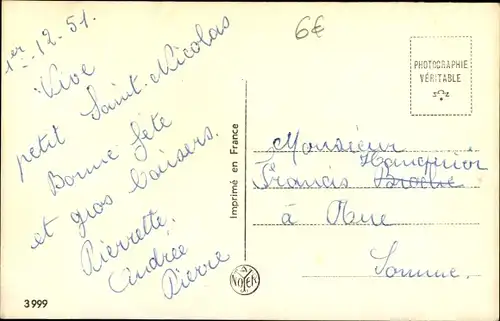 1er-12-51.
Vive
petit Saint-Nicolas
Bonne fête
et gros baisers.
Pierrette,
Andrée
Pierre
3999
Imprimé en France
6€
PHOTOGRAPHIE
VÉRITABLE
Monsieur
Francis
à Rue
Somme.